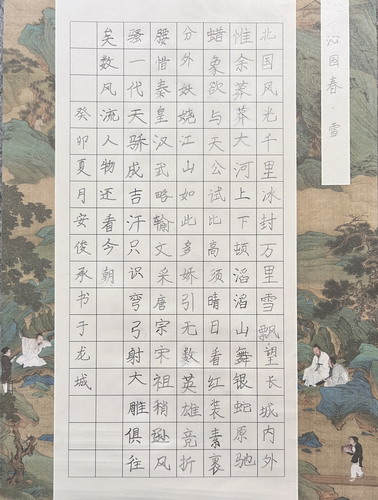 沁园春·雪
北国风光千里冰封万里雪飘望长城内外
惟余莽莽大河上下顿滔滔山舞银蛇原驰
蜡象欲与天公试比高须晴日看红装素裹
分外妖娆江山如此多娇引无数英雄竞折
腰惜秦皇汉武略输文采唐宗宋祖稍逊风
骚一代天骄成吉汗只识弯弓射大雕俱往
矣数风流人物还看今朝
癸卯夏月安俊承书于龙城